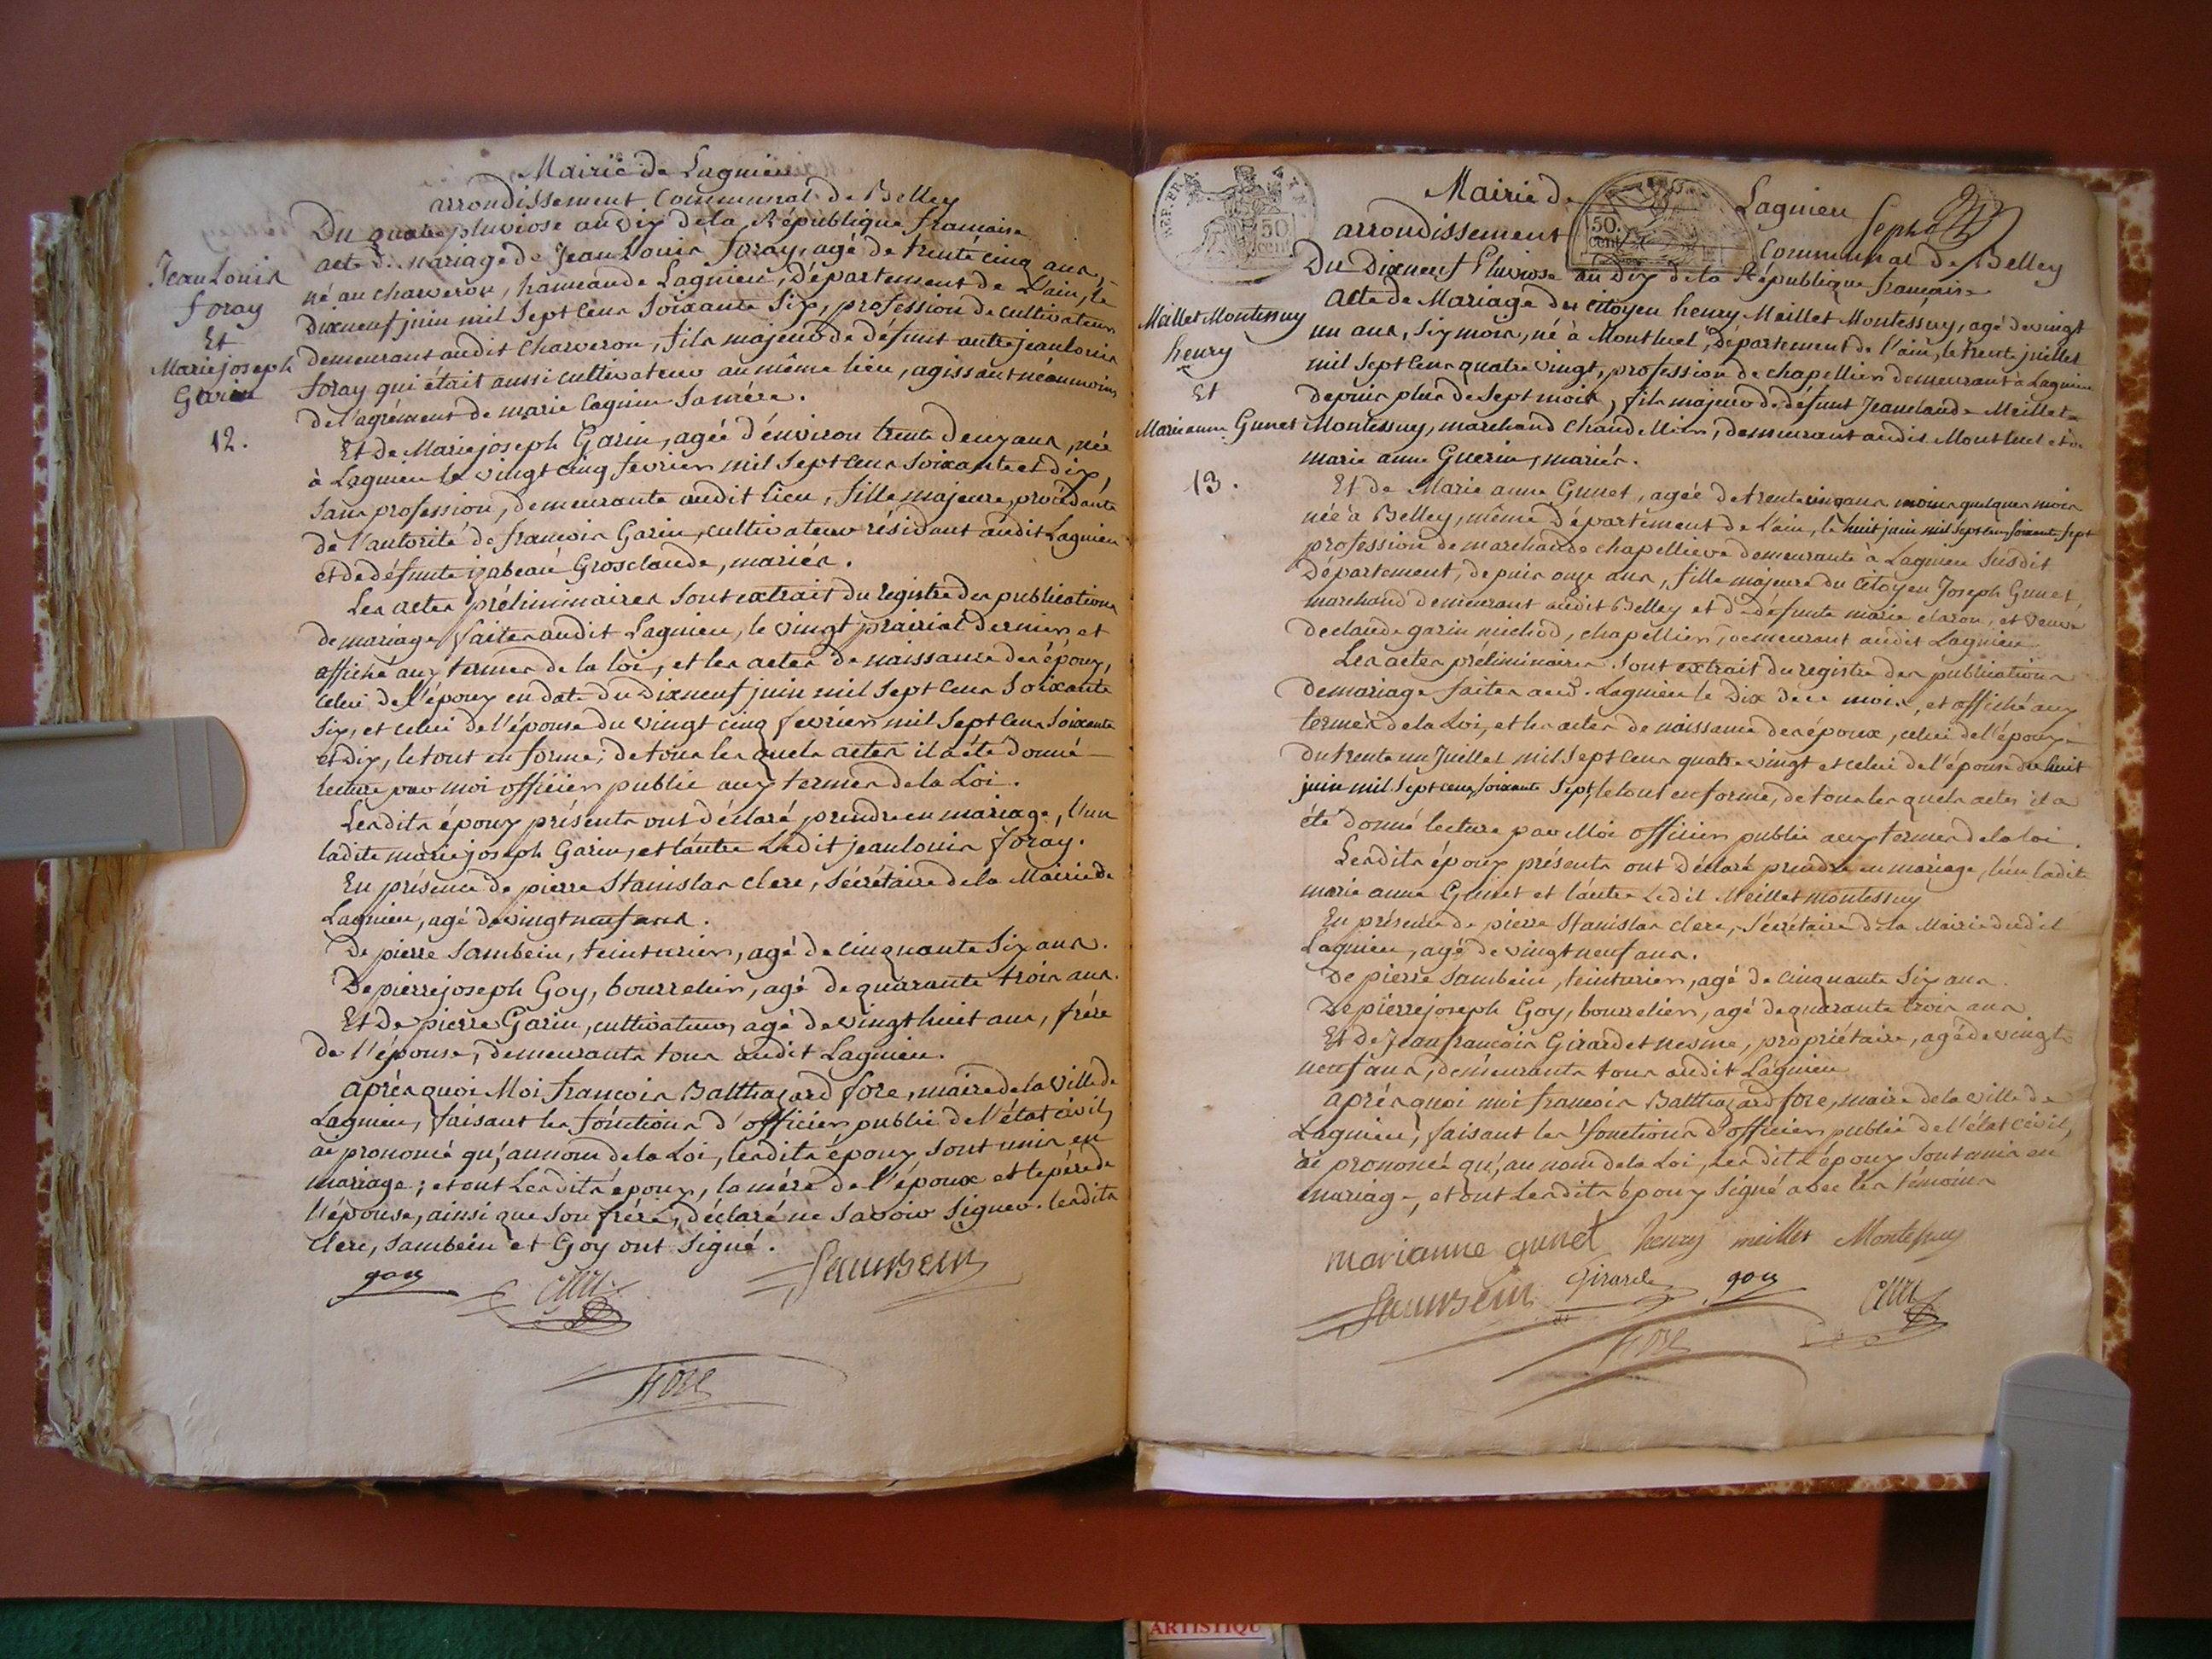 Mairie de Lagnieu
arrondissement Communal de Belley
Du quatre pluviose an dix de la République francaise
acte de mariage de Jean Louis foray, agé de trente cinq ans,
né au charveron, hameau de Lagnieu, Département de L'ain, le
Dixneuf juin mil Sept cens Soixante Six, profession de cultivateur
demeurant audit Charveron, fils majeur de défunt autre jean louis
foray qui était aussi cultivateur au même lieu, agissant néanmoins
de l'agrément de marie Cagnin Sa mère.
Jean Louis
foray
Et
Marie joseph
Garin
12.
Et de Marie joseph Garin, agée d'environ trente deux ans, née
à Lagnieu le vingt cinq fevrier mil Sept cens Soixante et dix,
Sans profession, demeurante audit lieu, fille majeure, procédante
de l'autorité de francois Garin, cultivateur résidant audit Lagnieu
et de défunte izabeau Grosclaude, mariés.
Les actes préliminaires Sont extrait du registre des publications
de mariage faites audit Lagnieu, le vingt prairial dernier et
affiché aux termes de la loi, et les actes de naissance des époux,
celui de l'époux en date du Dixneuf juin mil Sept cens Soixante
Six, et celui de l'épouse du vingt cinq fevrier mil Sept cens Soixante
et dix, le tout en forme; de tous les quels actes il a été donné
lecture par moi officier public aux termes de la Loi.
Lesdits époux présents ont déclaré prendre en mariage, l'un
ladite marie joseph Garin, et l'autre Ledit jean louis foray.
En présence de pierre Stanislas clere, Sécrétaire de la Mairie de
Lagnieu, agé de vingt neuf ans.
De pierre Sambein, teinturier, agé de cinquante Six ans.
De pierre joseph Goy, bourrelier, agé de quarante trois ans.
Et de pierre Garin, cultivateur, agé de vingt huit ans, frére
de l'épouse, demeurants tous audit Lagnieu.
après quoi Moi francois Balthazard fore, maire de la ville de
Lagnieu, faisant les fonctions d'officier public de l'état civil,
ai prononcé qu'au nom de la Loi, lesdits époux Sont unis en
mariage; et ont Lesdits époux, la mére de l'époux et le pére de
l'épouse, ainsi que Son frére, déclaré ne Savoir Signer. lesdits
clere, Sambein et Goy ont Signé.
goy
clere
Sambein
fore
REP. FRA.
50
cent
Mairie de Lagnieu
50.
cent
arrondissement Communal de Belley
Du Dixneuf Pluviose an Dix de la République francaise
Acte de Mariage du citoyen henry Meillet Montessuy, agé de vingt
un ans, Six mois, né à Montluel, Département de l'ain, le trente juillet
mil Sept cens quatre vingt, profession de chapellier demeurant à Lagnieu
depuis plus de Sept mois, fils majeur de défunt Jean claude Meillet
Montessuy, marchand chandellier, demeurant audit Montluel et de
marie anne Guerin, mariés.
Meillet Montessuy
henry
Et
Marie anne Gunet
13.
Et de Marie anne Gunet, agée de trente cinq ans moins quelques mois
née à Belley, même Département de l'ain, le huit juin mil Sept cens Soixante Sept
profession de marchande chapelliere demeurante à Lagnieu Susdit
Département, depuis onze ans, fille majeure du citoyen Joseph Gunet,
marchand demeurant audit Belley et de défunte marie claron, et veuve
de claude garin michod, chapellier, demeurant audit Lagnieu.
Les actes préliminaires Sont extrait du registre des publications
de mariage faites aud. Lagnieu le Dix de ce mois, et affiché aux
termes de la Loi, et les actes de naissance des époux, celui de l'époux
du trente un Juillet mil Sept cens quatre vingt et celui de l'épouse du huit
juin mil Sept cens Soixante Sept, le tout en forme, de tous les quels actes il a
été donné lecture par Moi officier public aux termes de la loi.
Lesdits époux présents ont Déclaré prendre en mariage, l'un ladite
marie anne Gunet et l'autre Ledit Meillet montessuy
En présence de pierre Stanislas clere, Sécrétaire de la Mairie dudit
Lagnieu, agé de vingt neuf ans.
De pierre Sambein, teinturier, agé de cinquante Six ans.
De pierre joseph Goy, bourrelier, agé de quarante trois ans
Et de Jean francois Girard et nesme, propriétaire, agé de vingt
neuf ans, demeurants tous audit Lagnieu
après quoi moi francois Balthazard fore, maire de la ville de
Lagnieu, faisant les fonctions d'officier public de l'état civil,
ai prononcé qu'au nom de la Loi, Lesdits époux Sont unis en
mariage, et ont Lesdits époux Signé avec les témoins
marianne gunet henry meillet Montessuy
Sambein Girard goy clere
fore
ARTISTIQU